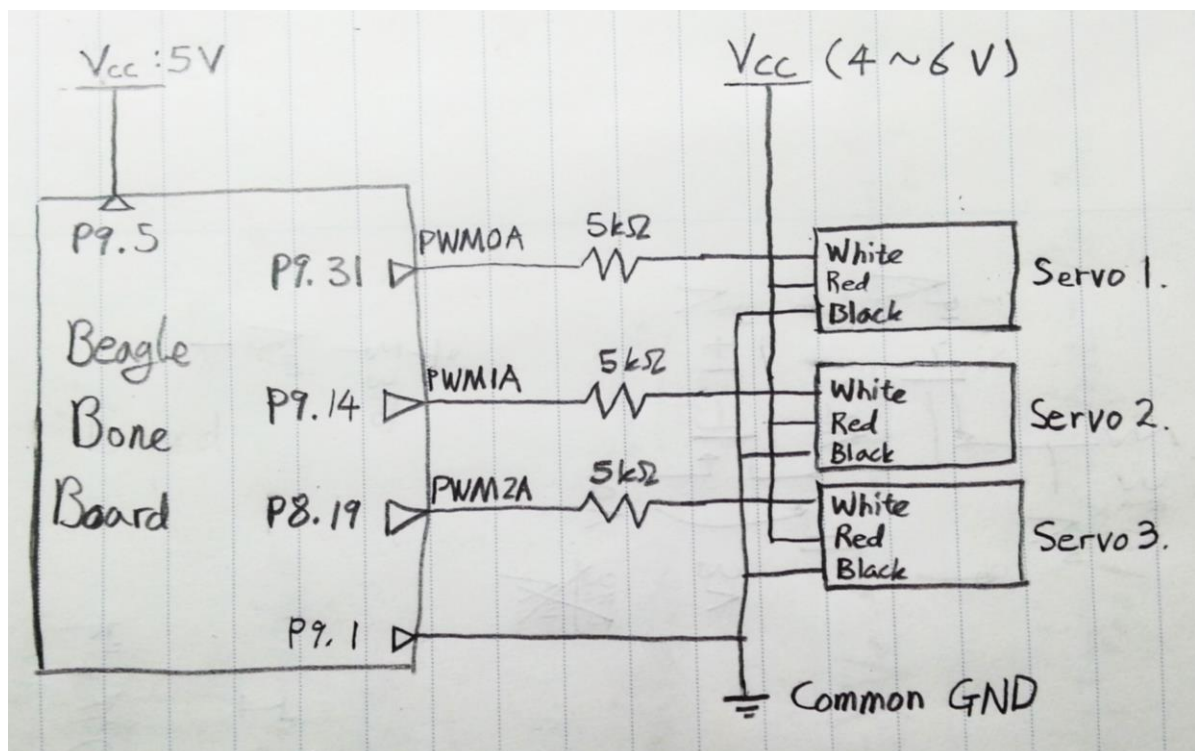 Vcc : 5V
Vcc (4 ~ 6 V)
P9.5
Beagle
Bone
Board
P9.31
PWM0A
5kΩ
White
Red
Black
Servo 1.
P9.14
PWM1A
5kΩ
White
Red
Black
Servo 2.
P8.19
PWM2A
5kΩ
White
Red
Black
Servo 3.
P9.1
Common GND